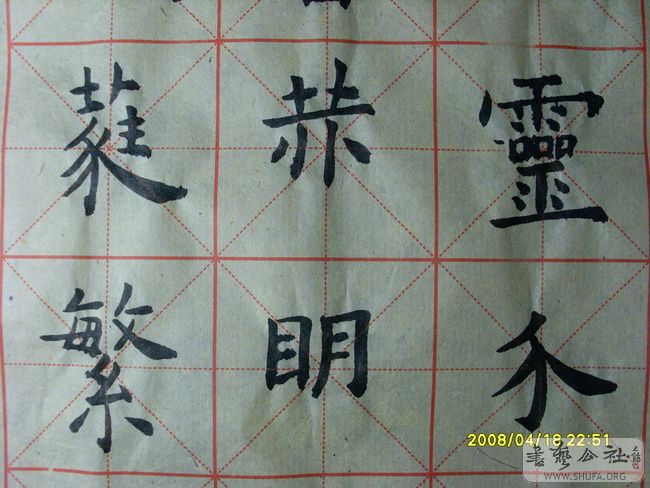 靈赫蕤
介明繁
2008/04/18 22:51
書藝公社
WWW.SHUFA.ORG